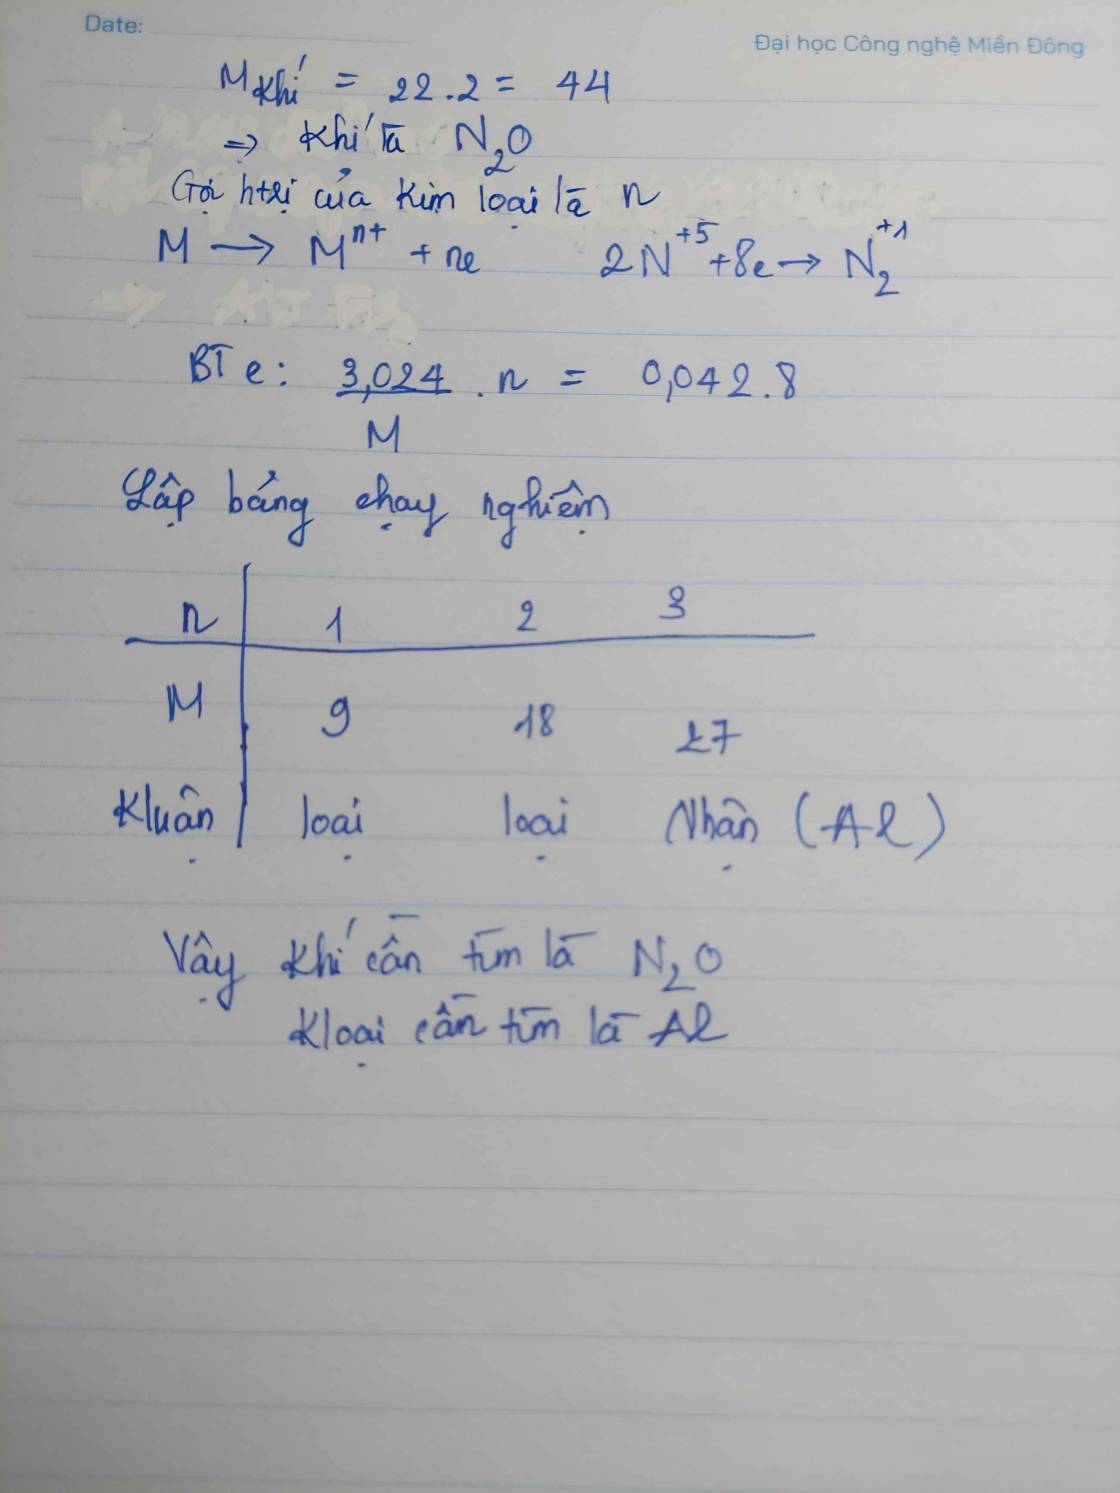 Date:
Đại học Công nghệ Miền Đông
M khí = 22.2 = 44
=> khí là N2O
Gọi htrị của kim loại là n
M → M^n+ + ne 2N^+5 + 8e → N2^+1
BT e: 3,024/M . n = 0,042.8
Lập bảng chạy nghiệm
n 1 2 3
M 9 18 27
Kluận loại loại Nhận (Al)
Vậy khí cần tìm là N2O
Kloại cần tìm là Al